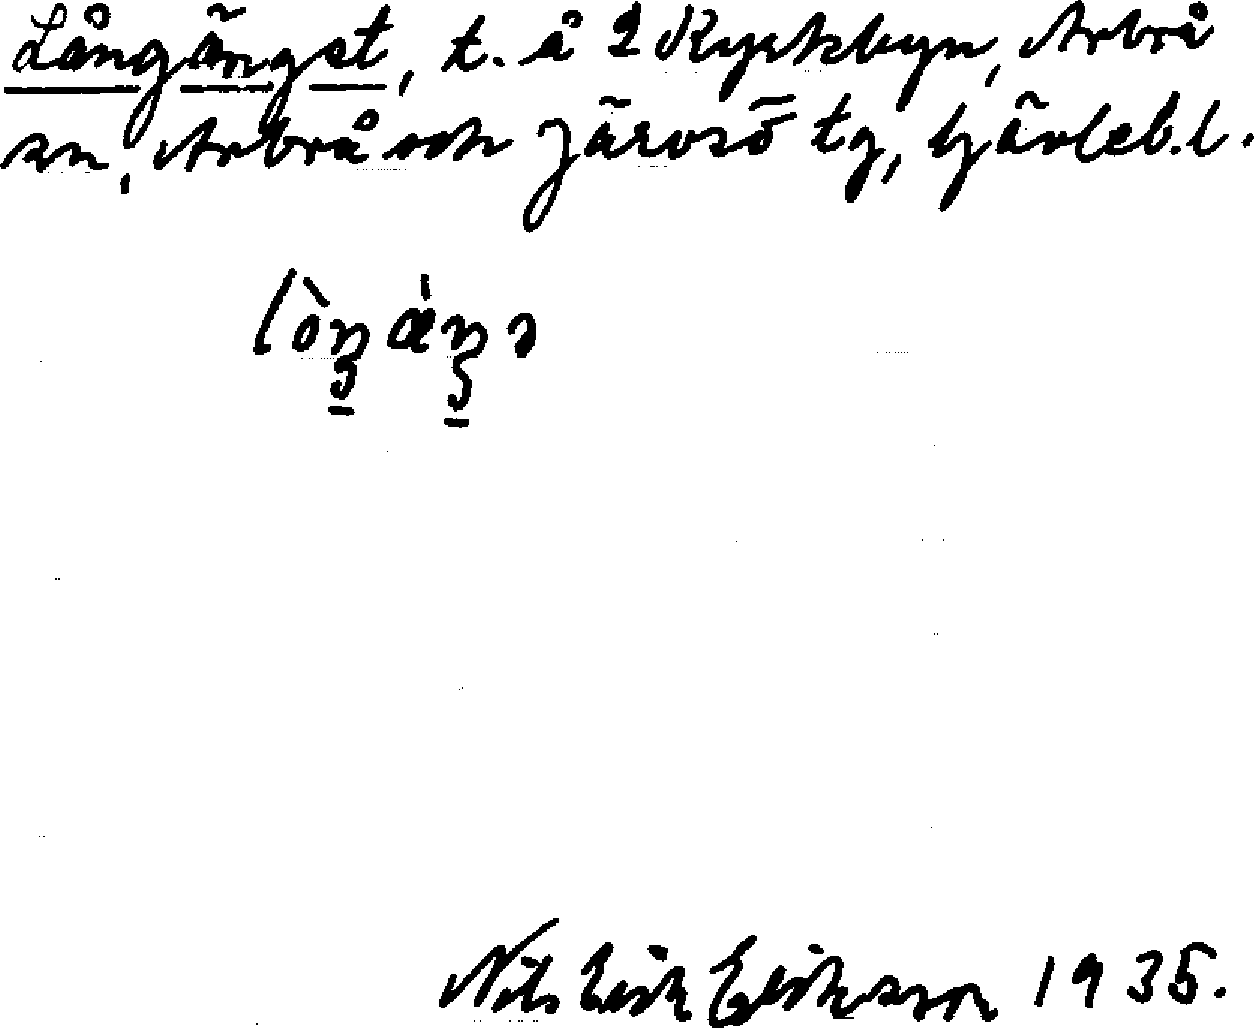 Långänget, t. å 2 Kyrkbyn, Arbrå
sn, Arbrå och Järvsö tg, Gävleb.l.
lòŋǽŋə
Nils Erik Eriksson 1935.